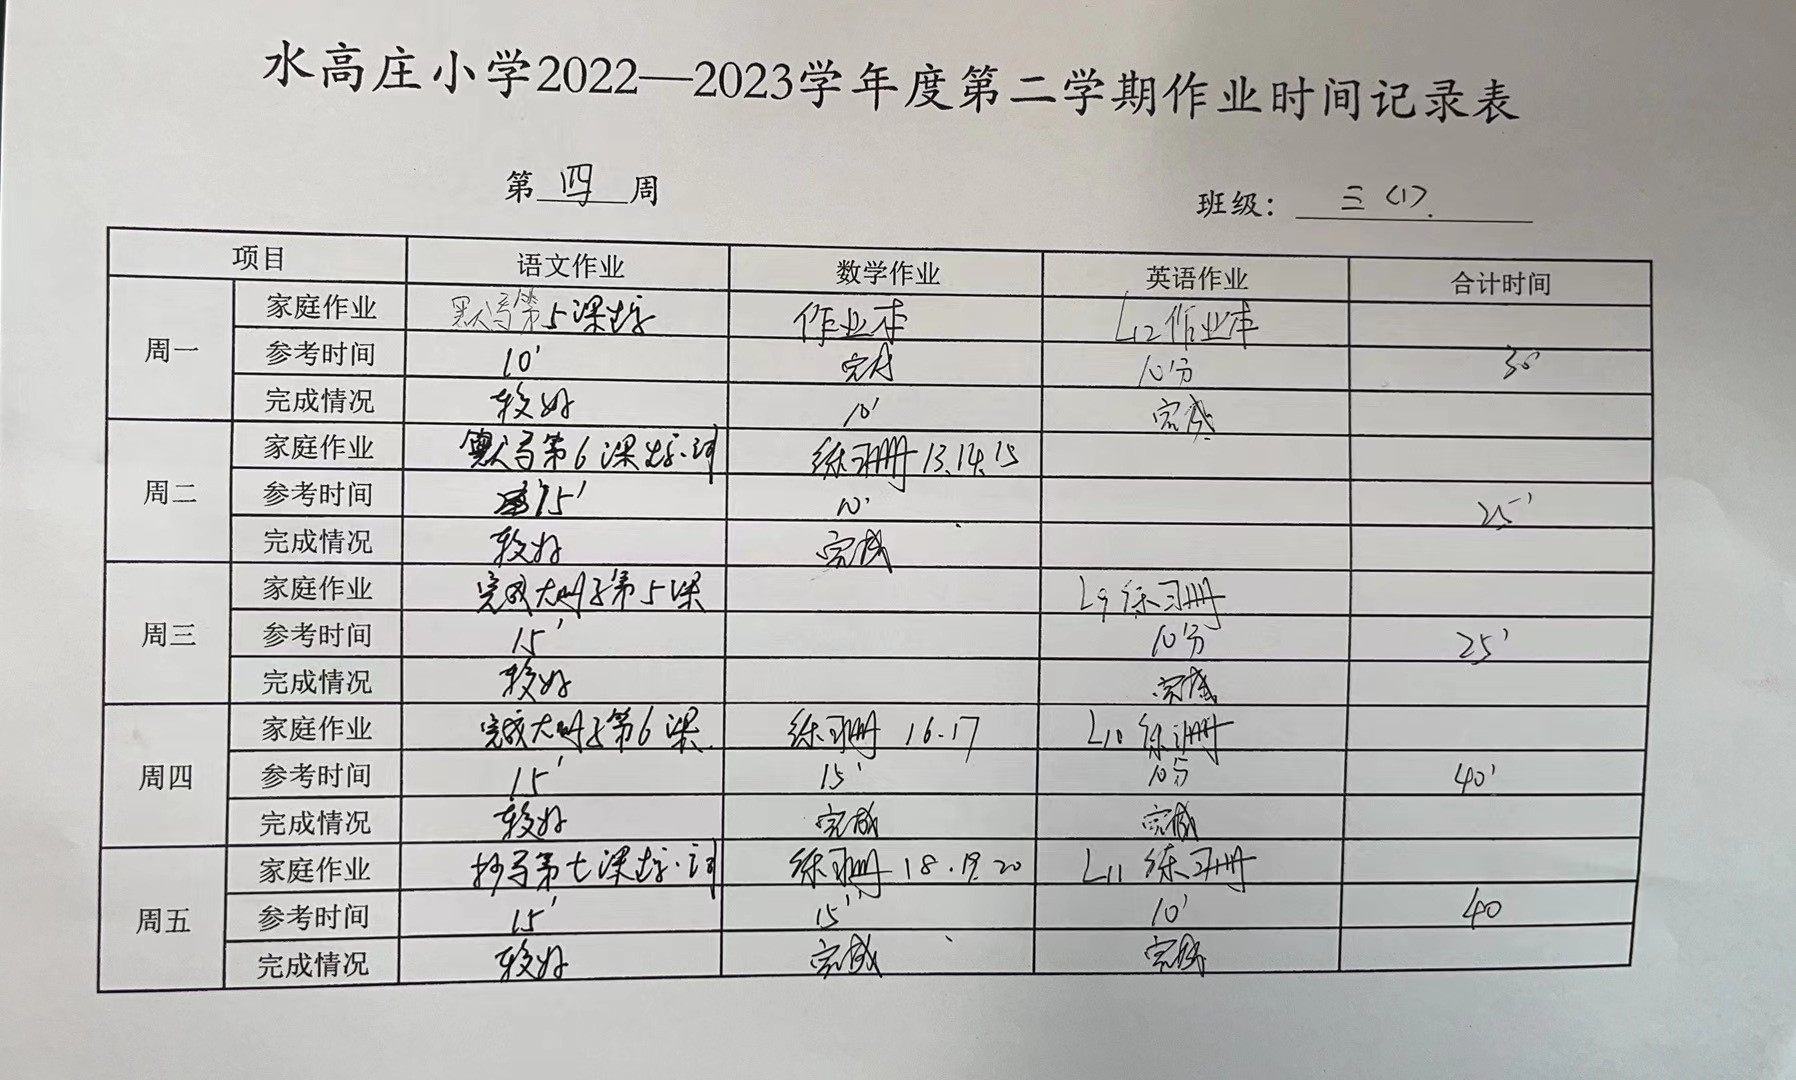 水高庄小学2022—2023学年度第二学期作业时间记录表
第 四 周 班级： 三（1）.
项目 语文作业 数学作业 英语作业 合计时间
周一
家庭作业 默写第5课生字 作业本 L12作业本
参考时间 10' 完成 10分 30'
完成情况 较好 10' 完成
周二
家庭作业 默写第6课生字.词 练习册13.14.15
参考时间 15' 10' 25'
完成情况 较好 完成
周三
家庭作业 完成大册子第5课 L9练习册
参考时间 15' 10分 25'
完成情况 较好 完成
周四
家庭作业 完成大册子第6课. 练习册 16.17 L10练习册
参考时间 15' 15' 10分 40'
完成情况 较好 完成 完成
周五
家庭作业 抄写第七课生字.词 练习册18.19.20 L11练习册
参考时间 15' 15' 10' 40
完成情况 较好 完成 完成